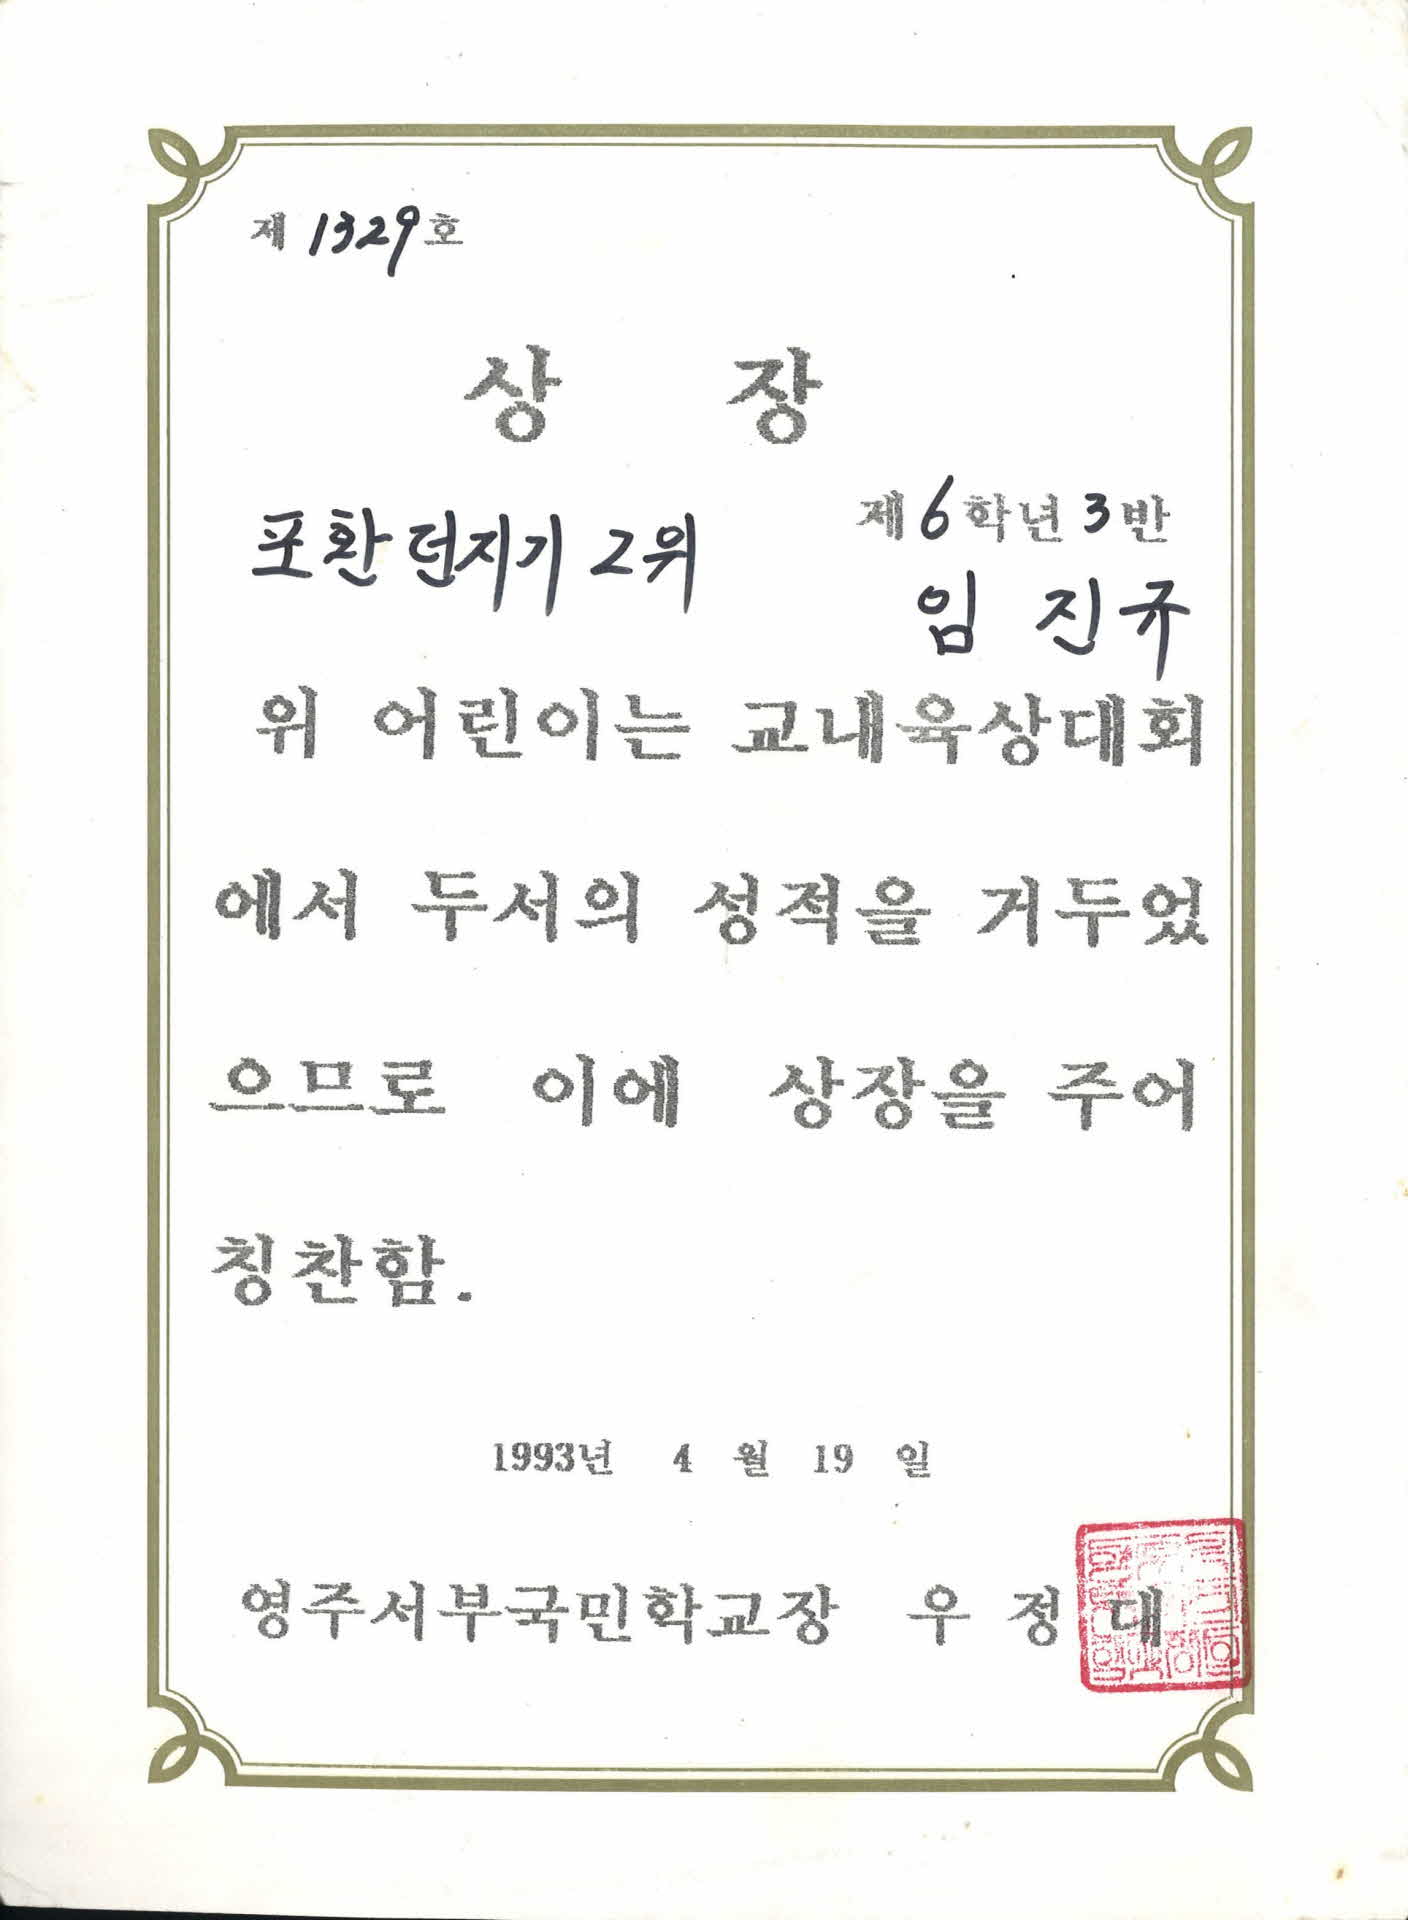 제 1329 호
상 장
포환던지기 2위
제 6 학년 3 반
임 진규
위 어린이는 교내육상대회
에서 두서의 성적을 거두었
으므로 이에 상장을 주어
칭찬함.
1993년 4 월 19 일
영주서부국민학교장 우 정 대